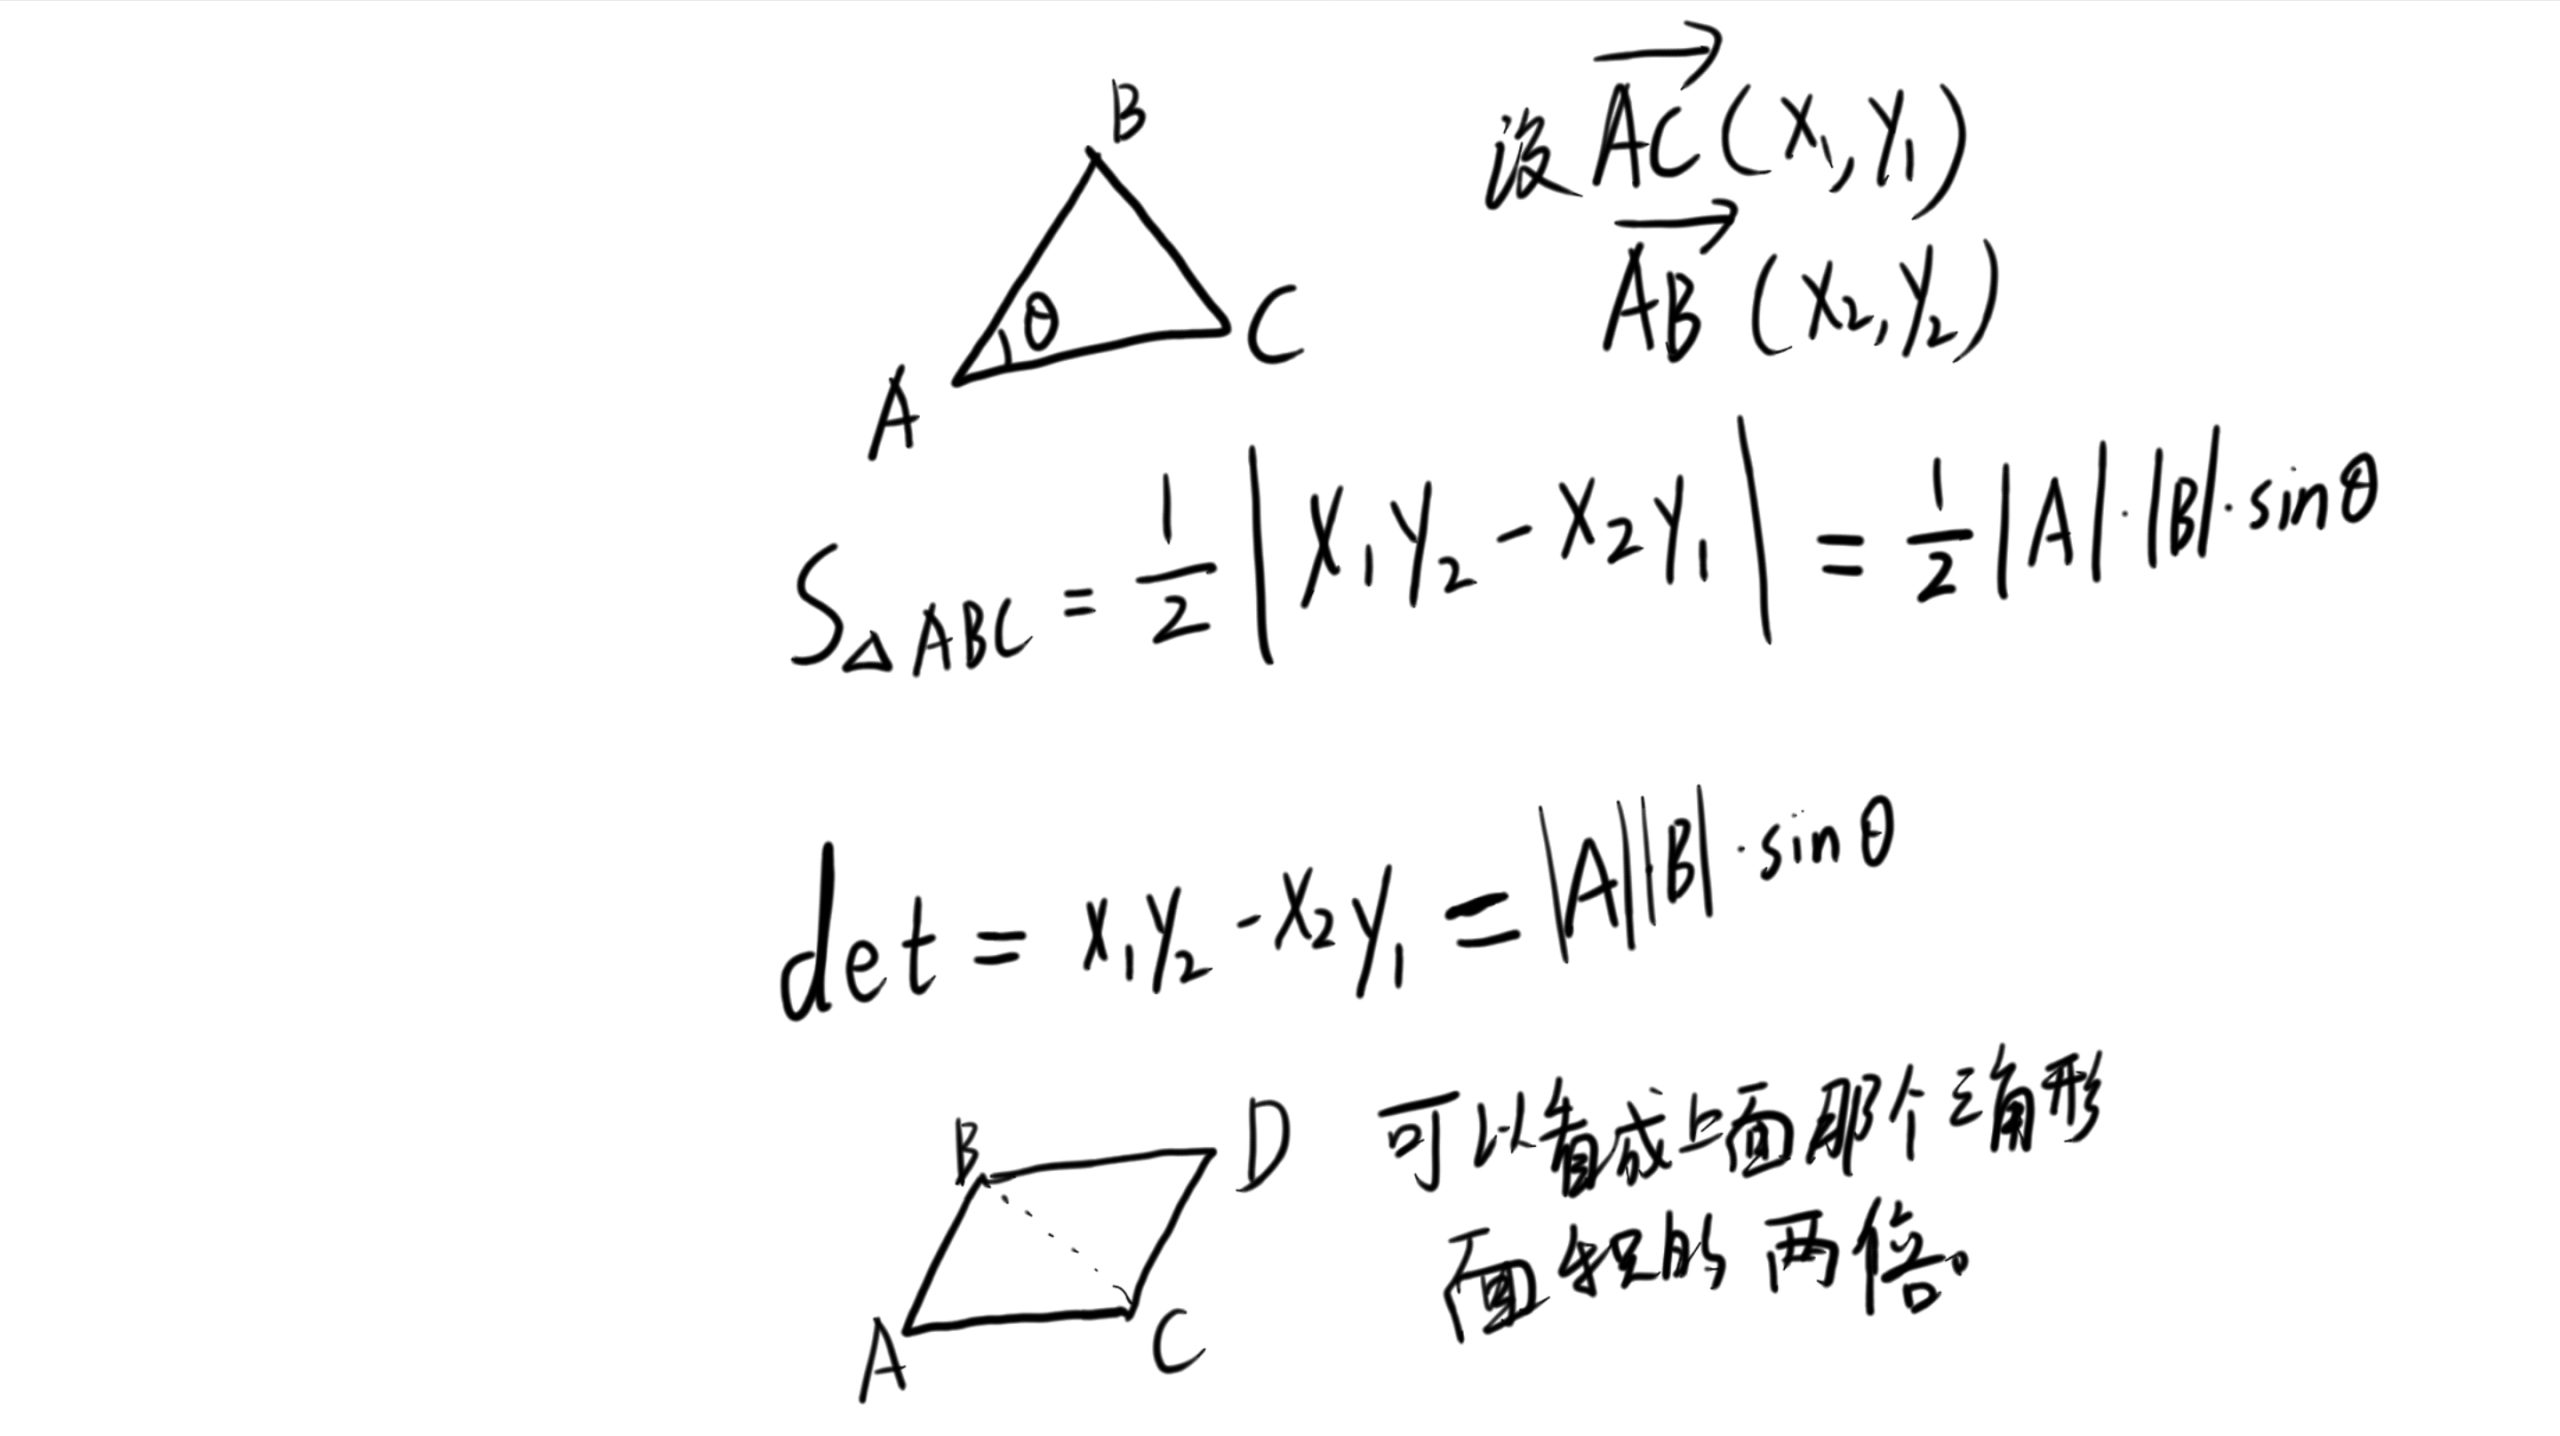 B
设 AC(X₁,Y₁)
θ
C
AB(X₂,Y₂)
A
S△ABC = 1/2 |X₁Y₂ - X₂Y₁| = 1/2 |A|·|B|·sinθ
det = X₁Y₂ - X₂Y₁ = |A||B|·sinθ
B
D
可以看成上面那个三角形
面积的两倍。
A
C